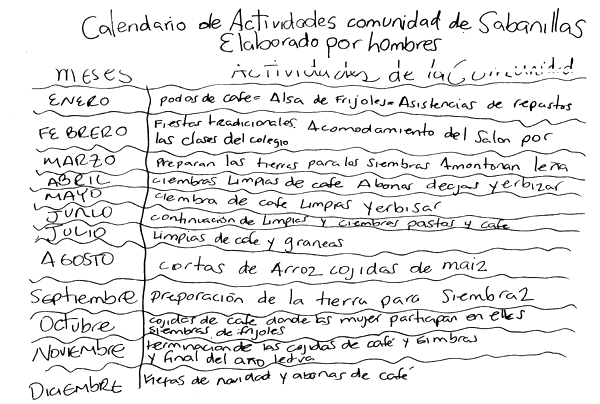 Calendario de Actividades comunidad de Sabanillas
Elaborado por hombres
MESES Actividades de la Comunidad
ENERO podas de cafe= Alsa de Frijoles= Asistencias de repastos
FEBRERO Fiestas tradicionales. Acomodamiento del Salon por
las clases del colegio
MARZO Preparan las tierras para las siembras Amontonan leña
ABRIL ciembras Limpias de cafe Abonas deojas y erbizar
MAYO ciembra de cafe Limpias yerbisar
JUNIO continuación de Limpias y ciembras pastos y cafe
JULIO Limpias de cafe y graneas
AGOSTO cortas de Arroz cojidas de maiz
Septiembre preporación de la tierra para siembraz
Octubre cojidas de cafe donde las mujer participan en elles
siembras de frijoles
Noviembre terminación de las cojidas de café y simbras
y final del año lectivo
DICIEMBRE Fietas de navidad y abonas de café